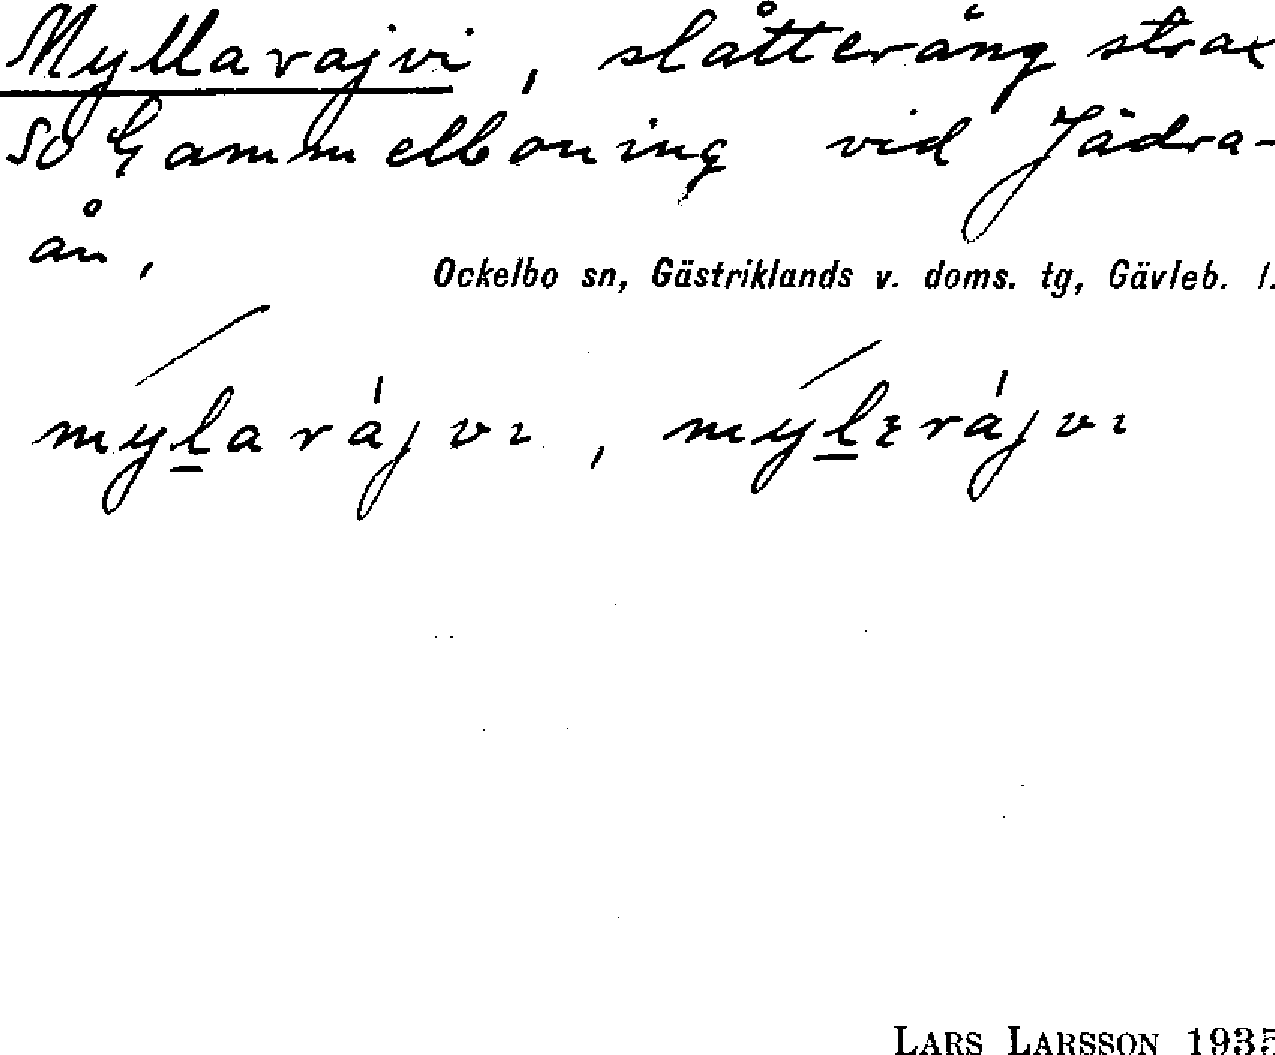 Myllarajvi, slåtteräng strax
SO Gammelboning vid Jädra-
ån,
Ockelbo sn, Gästriklands v. doms. tg, Gävleb. l.
mýlarájvı, mýlɛrájvı
LARS LARSSON 1935